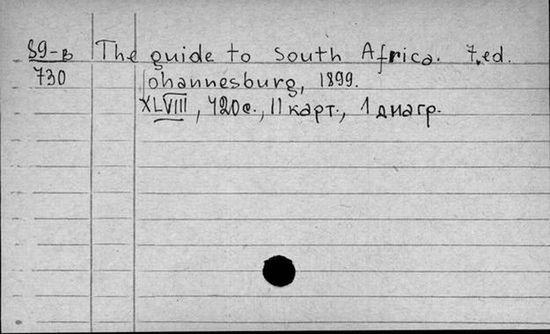 89-в The guide to South Africa. 7.ed.
730 Johannesburg, 1899.
XLVIII, 420с., 11 карт., 1 диагр.